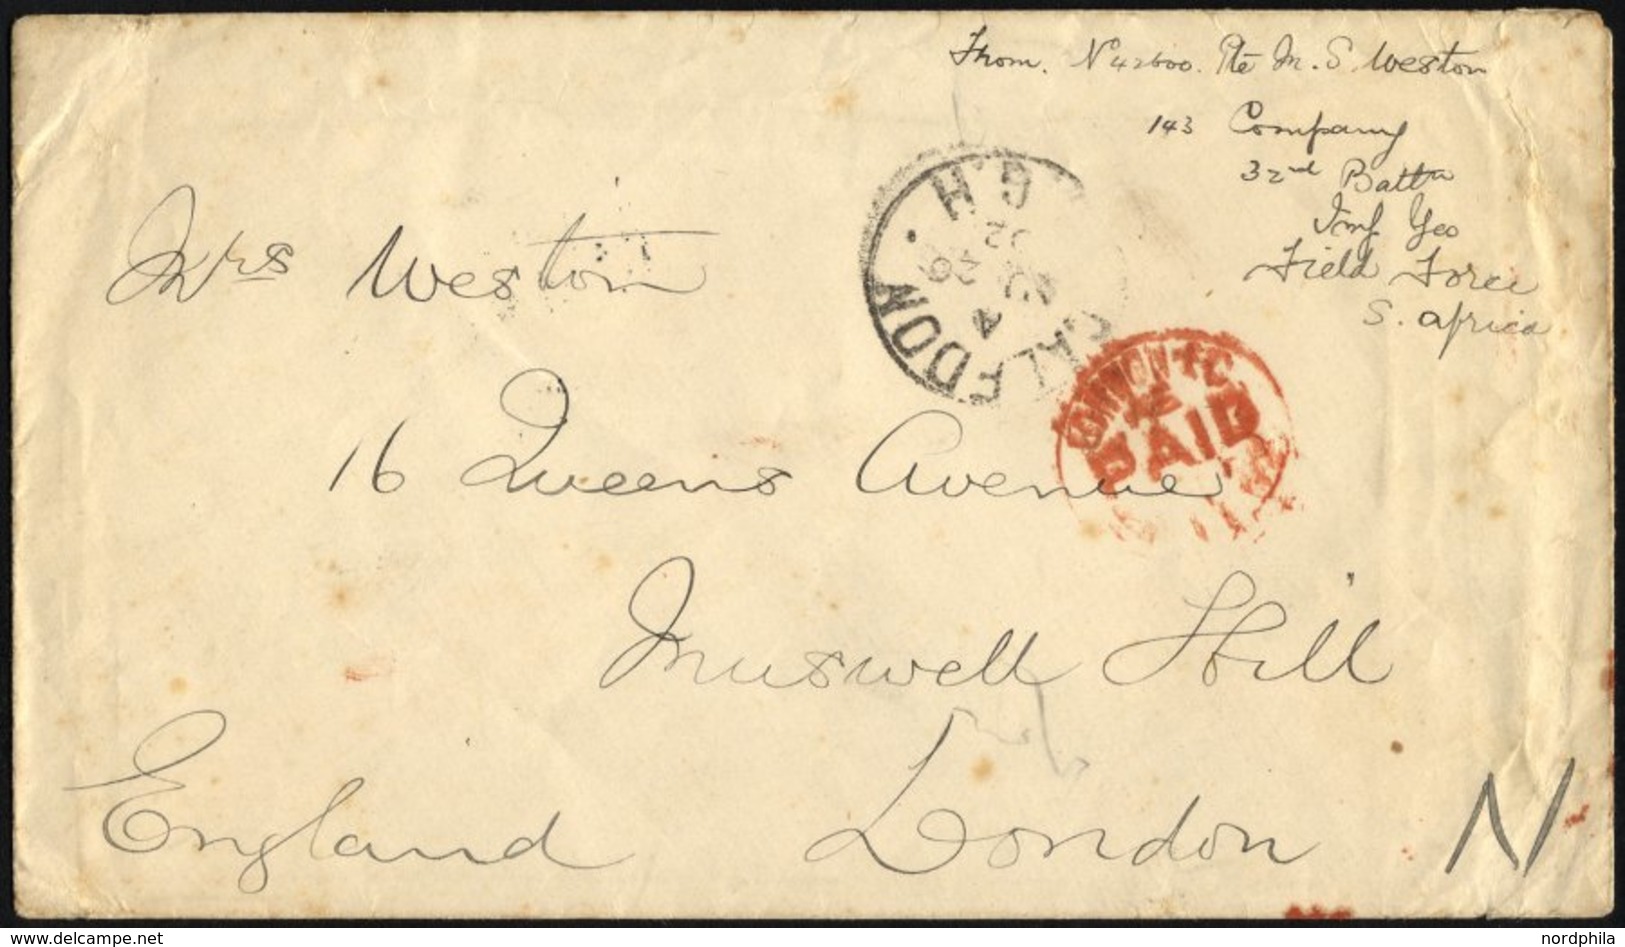 From. N 42600. Pte M. S. Weston
143 Company
32nd Battn
Imp Yeo
Field Force
S. Africa
Mrs Weston
16 Queens Avenue
Muswell Hill
London
England
N
CALEDON
G.H
26
02
LONDON
PAID
delcampe.net
nordphila